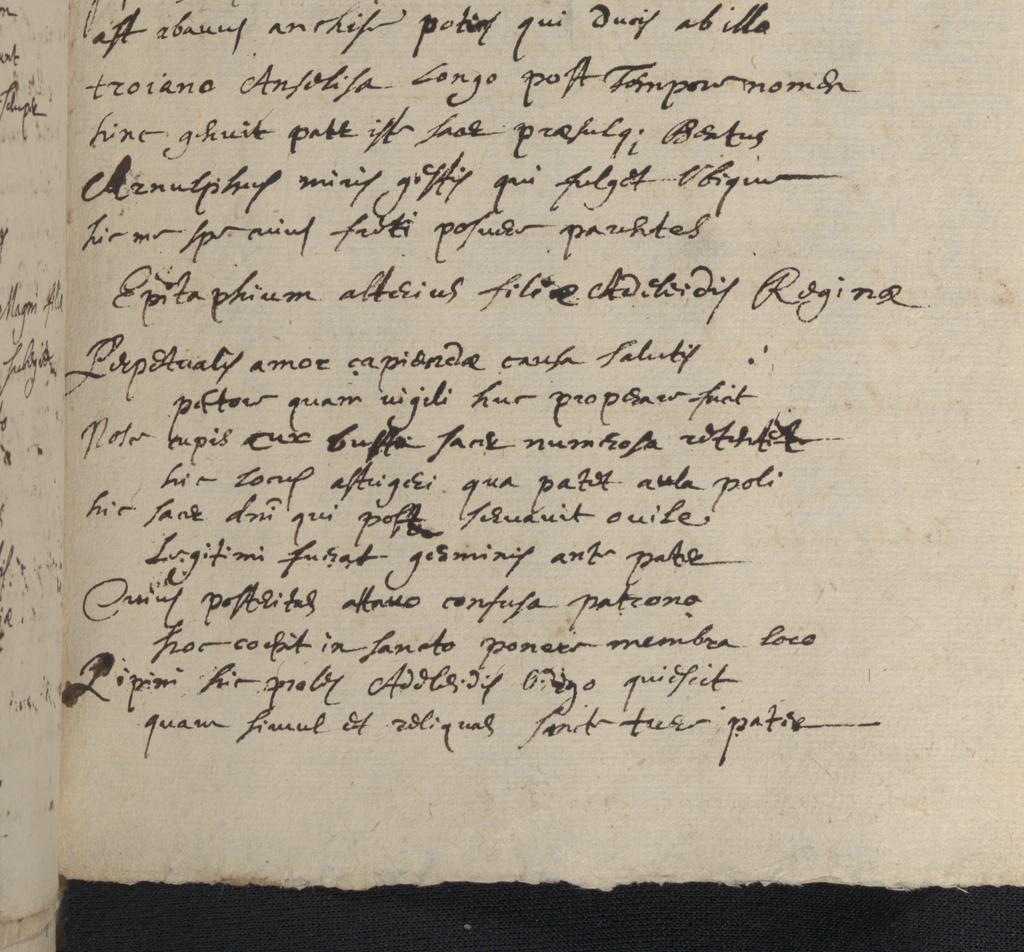 ast abavus anchise potens qui ducis ab illo
troiano Anselisa Longo post Tempore nomen
hinc genuit pater iste sacer præsulq; Beatus
Arnulphus miris gestis qui fulget Ubique
hic me spe cuius freti posuere parentes
Epitaphium alterius filiæ Adeleidis Reginæ
Perpetualis amor capiendæ causa salutis
pectore quam vigili huc properare facit
Nosse cupis cur busta sacer numerosa retentet
hic Locus astrigeri qua patet aula poli
hic sacer dni qui post servavit ovile
Legitimi fuerat geminis ante pater
Cuius posteritas attavo confusa patrono
hoc coepit in sancto ponere membra loco
Pipini hic proles Adeleidis virgo quiescit
quam simul et reliquas sancte tuere pater